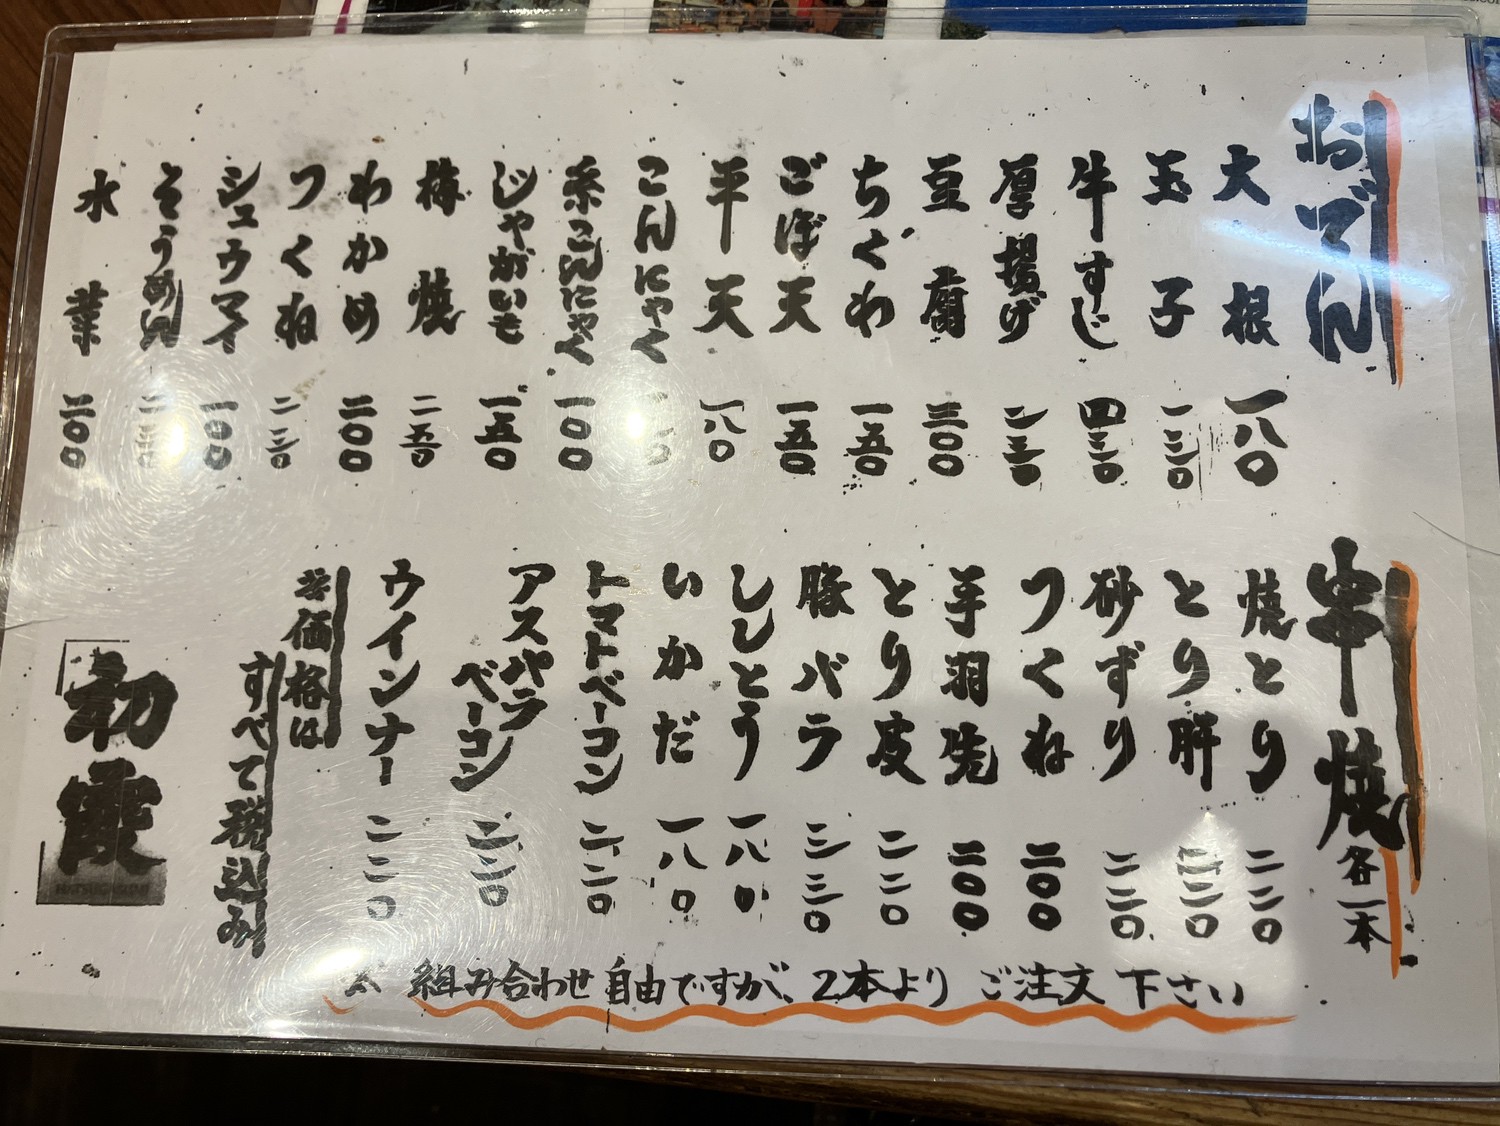 おでん
大根 一八〇
玉子 一三〇
牛すじ 四三〇
厚揚げ 二三〇
豆腐 三〇〇
ちくわ 一五〇
ごぼ天 一五〇
平天 一八〇
こんにゃく
糸こんにゃく 一〇〇
じゃがいも 一五〇
梅焼 二五〇
わかめ 二〇〇
つくね 二三〇
シュウマイ 一〇〇
そうめん
水菜 二〇〇
串焼 各一本
焼とり 二二〇
とり肝 二二〇
砂ずり 二二〇
つくね 二〇〇
手羽先 二〇〇
とり皮 二二〇
豚バラ 三三〇
ししとう 一八〇
いかだ 一八〇
トマトベーコン 二二〇
アスパラベーコン 二二〇
ウインナー 二二〇
※価格は
すべて税込み
※組み合わせ自由ですが、2本より ご注文下さい
初霞
HATSUGASUMI